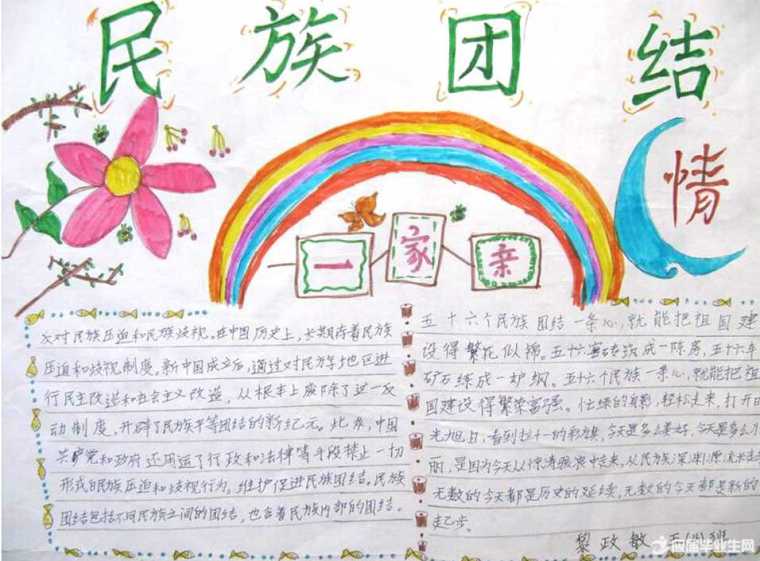 民族团结
情
一家亲
反对民族压迫和民族歧视。在中国历史上,长期存着民族
压迫和歧视制度。新中国成立后,通过对民族地区进
行民主改造和社会主义改造,从根本上废除了这一反
动制度,开辟了民族平等团结的新纪元。此后,中国
共产党和政府还用运了行政和法律等手段禁止一切
形式的民族压迫和歧视行为。维护促进民族团结。民族
团结包括不同民族之间的团结,也含着民族内部的团结。
五十六个民族团结一条心,就能把祖国建
设得繁花似锦。五十六 成一阵房,五十六车
矿石练成一炉钢。五十六个民族一条心,就能把祖
国建设得繁荣富强。忙绿的 ,轻松走来,打开
光旭日,看到 的彩旗,今天是多么美好,今天是多么
丽,是因为今天从惊涛骇浪中走来,从民族深渊
无数的今天都是历史的延续,无数的今天都是新的
起步。
黎政敏 五(4)班
应届毕业生网